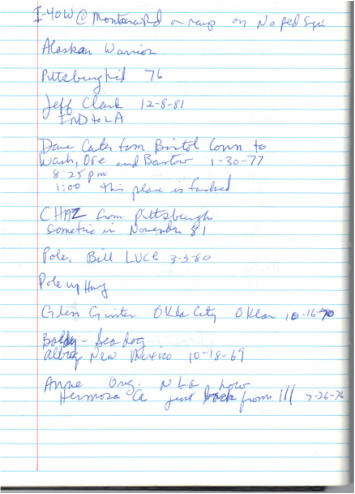 I-40W @ Montara Rd on ramp on No ped sign
Alaskan Warrior
Pittsburgh kid 76
Jeff Clark 12-8-81
IND to LA
Dave Cates from Bristol Conn to
Wash, Ore and Barstow 1-30-77
8:25 pm
1:00 this place is fucked
CHAZ from Pittsburgh
sometime in November 81
Pole, Bill LUCE 3-3-80
Pole
Glen Okla City Oklan 10-16-70
Baldy - Sea dog
Albuq New Mexico 10-18-69
Anne Org. now
Hermosa Ca just back from Ill 7-26-76